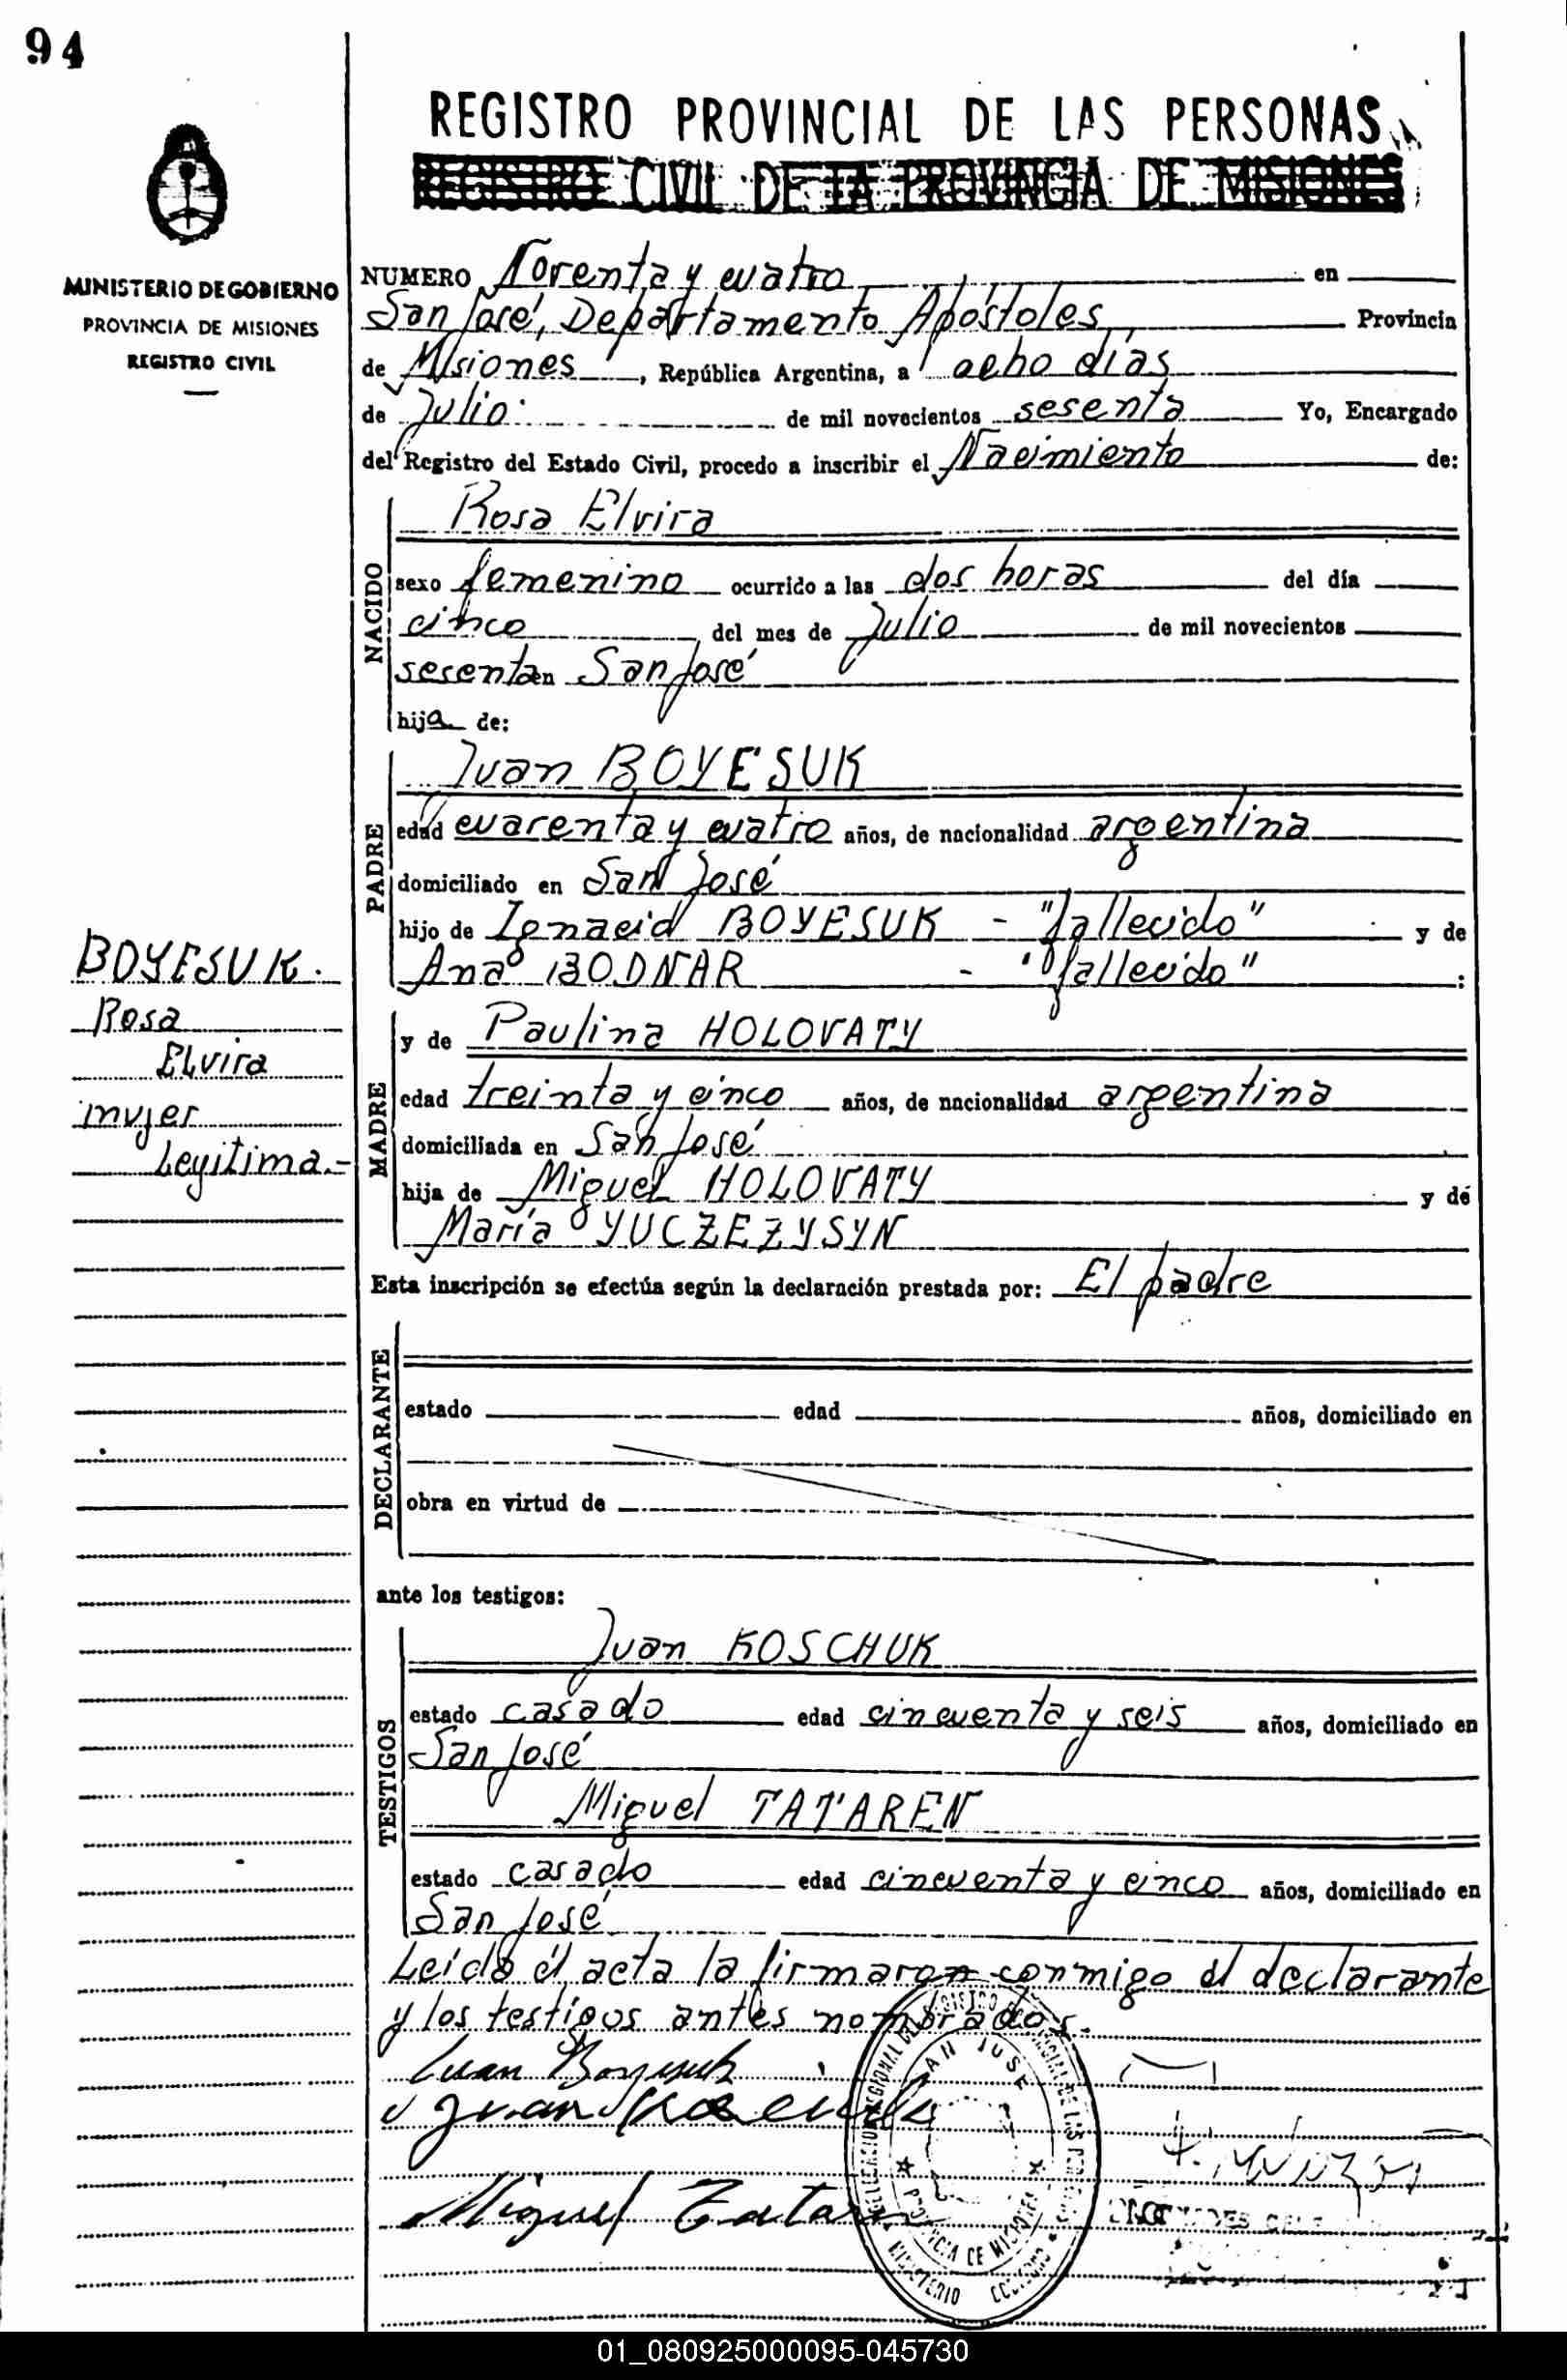 94
REGISTRO PROVINCIAL DE LAS PERSONAS
REGISTRO CIVIL DE LA PROVINCIA DE MISIONES
MINISTERIO DE GOBIERNO
PROVINCIA DE MISIONES
REGISTRO CIVIL
NUMERO Noventa y cuatro en
San José, Departamento Apóstoles, Provincia
de Misiones, República Argentina, a ocho días
de Julio de mil novecientos sesenta Yo, Encargado
del Registro del Estado Civil, procedo a inscribir el Nacimiento de:
NACIDO
Rosa Elvira
sexo femenino ocurrido a las dos horas del día
cinco, del mes de Julio de mil novecientos
sesenta en San José
hija de:
PADRE
Juan BOYESUK
edad cuarenta y cuatro años, de nacionalidad argentina
domiciliado en San José
hijo de Ignacio BOYESUK - "fallecido" y de
Ana BODNAR - "fallecido" :
BOYESUK.
Rosa
Elvira
mujer
Legitima.-
MADRE
y de Paulina HOLOVATY
edad treinta y cinco años, de nacionalidad argentina
domiciliada en San José
hija de Miguel HOLOVATY y de
María YUCZEZYSYN
Esta inscripción se efectúa según la declaración prestada por: El padre
DECLARANTE
estado edad años, domiciliado en
obra en virtud de
ante los testigos:
TESTIGOS
Juan KOSCHUK
estado casado edad cincuenta y seis años, domiciliado en
San José
Miguel TATAREN
estado casado edad cincuenta y cinco años, domiciliado en
San José
Leída el acta la firmaron conmigo el declarante
y los testigos antes nombrados.
Juan Boyesuk
Juan
Miguel Tataren
SAN JOSE
PROVINCIA DE MISIONES
MINISTERIO
01_080925000095-045730